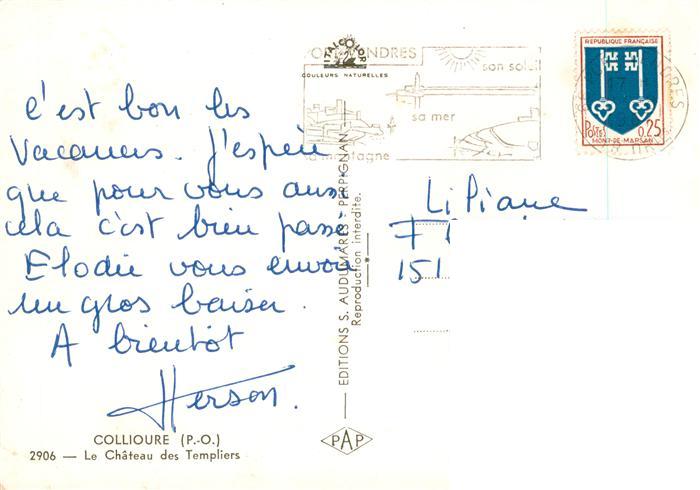 c'est bon les
vacances. J'espère
que pour vous aussi
cela c'est bien passé.
Elodie vous envoie
un gros baiser.
A bientôt
Herson.
COLLIOURE (P.-O.)
2906 — Le Château des Templiers
ITALCOLOR
COULEURS NATURELLES
son soleil
sa mer
sa montagne
— EDITIONS S. AUDUMARES - PERPIGNAN —
Reproduction interdite.
PAP
REPUBLIQUE FRANÇAISE
POSTES 0,25
MONT-DE-MARSAN
Liliane
151